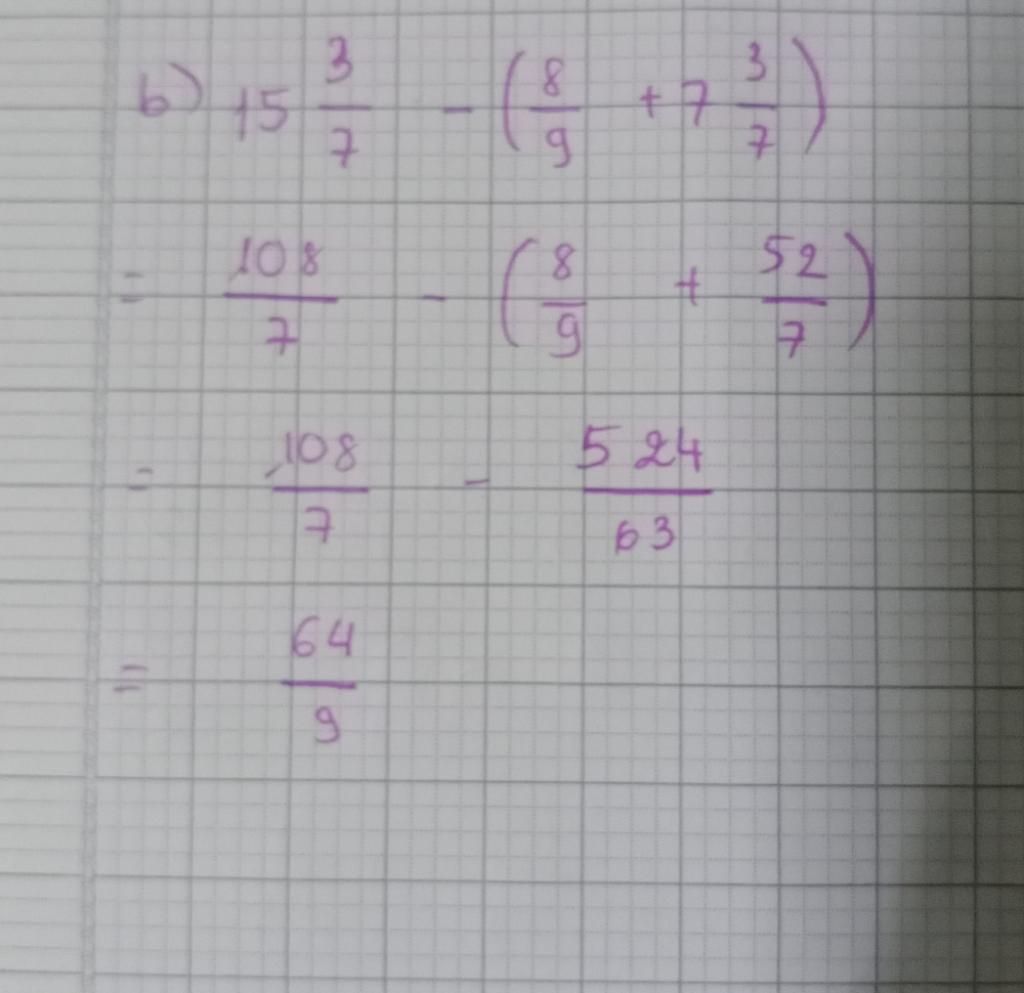 b) 15 3/7 - (8/9 + 7 3/7)
= 108/7 - (8/9 + 52/7)
= 108/7 - 524/63
= 64/9